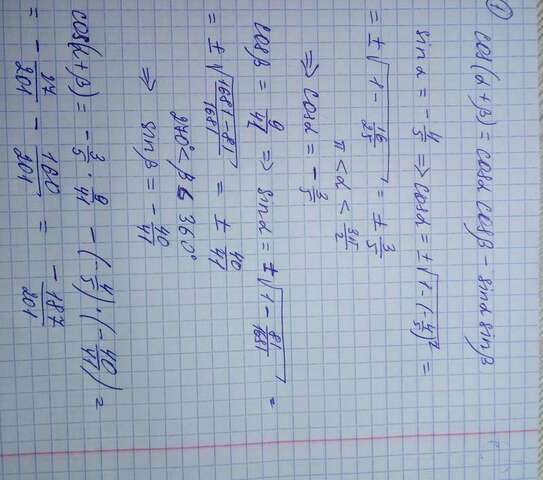 ① cos(α+β) = cosα cosβ - sinα sinβ
sinα = -4/5 ⇒ cosα = ±√(1-(-4/5)²) =
= ±√(1 - 16/25) = ± 3/5
π < α < 3π/2
⇒ cosα = -3/5
cosβ = 9/41 ⇒ sinα = ±√(1 - 81/1681) =
= ±√(1681-81/1681) = ± 40/41
270° < β < 360°
⇒ sinβ = -40/41
cos(α+β) = -3/5 · 9/41 - (-4/5)·(-40/41) =
= -27/201 - 160/201 = -187/201